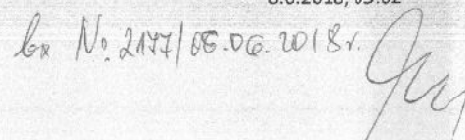 Вх № 2177/08.06.2018г.